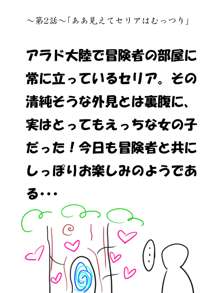 ～第2話～「ああ見えてセリアはむっつり」
アラド大陸で冒険者の部屋に
常に立っているセリア。その
清純そうな外見とは裏腹に、
実はとってもえっちな女の子
だった！今日も冒険者と共に
しっぽりお楽しみのようであ
る・・・
…